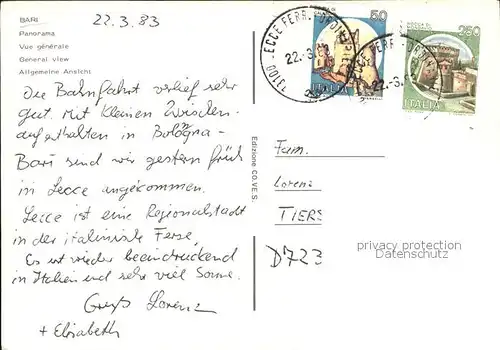 BARI
22.3.83
Panorama
Vue générale
General view
Allgemeine Ansicht
Die Bahnfahrt verlief sehr
gut. Mit kleinen Zwischen-
aufenthalten in Bologna-
Bari sind wir gestern früh
in Lecce angekommen.
Lecce ist eine Regionalstadt
in der italienische Ferse.
Es ist wieder beeindruckend
in Italien und sehr viel Sonne.
Gruß Lorenz
+ Elisabeth
Edizione CO.VE.S.
50
ITALIA
250
ITALIA
LECCE FERR.
22.3.
22.3.
Fam.
Lorenz
TIERS
D723
privacy protection
Datenschutz